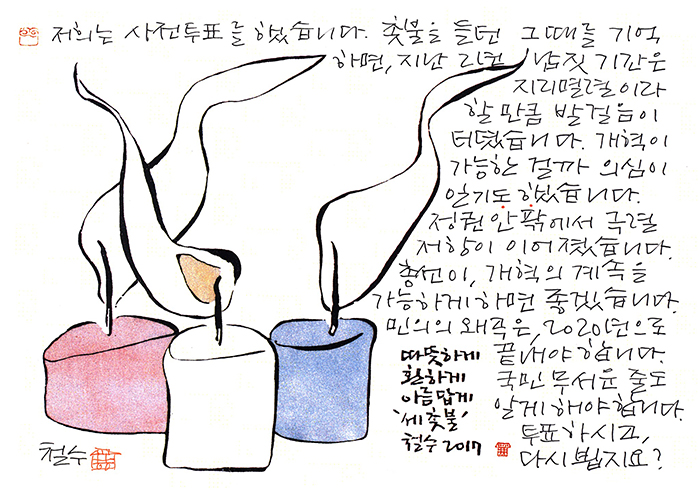 저희는 사전투표를 했습니다. 촛불을 들던 그때를 기억
하면, 지난 2년 남짓 기간은
지리멸렬이라
할 만큼 발걸음이
터뎠습니다. 개혁이
가능한 걸까 의심이
일기도 했습니다.
정권 안팎에서 극렬
저항이 이어졌습니다.
총선이, 개혁의 계속을
가능하게 하면 좋겠습니다.
민의의 왜곡은, 2020년으로
끝내야 합니다.
국민 무서운 줄도
알게 해야 합니다.
투표하시고,
다시 뵙지요?
따뜻하게
환하게
아름답게
'세 촛불'
철수 2017
철수